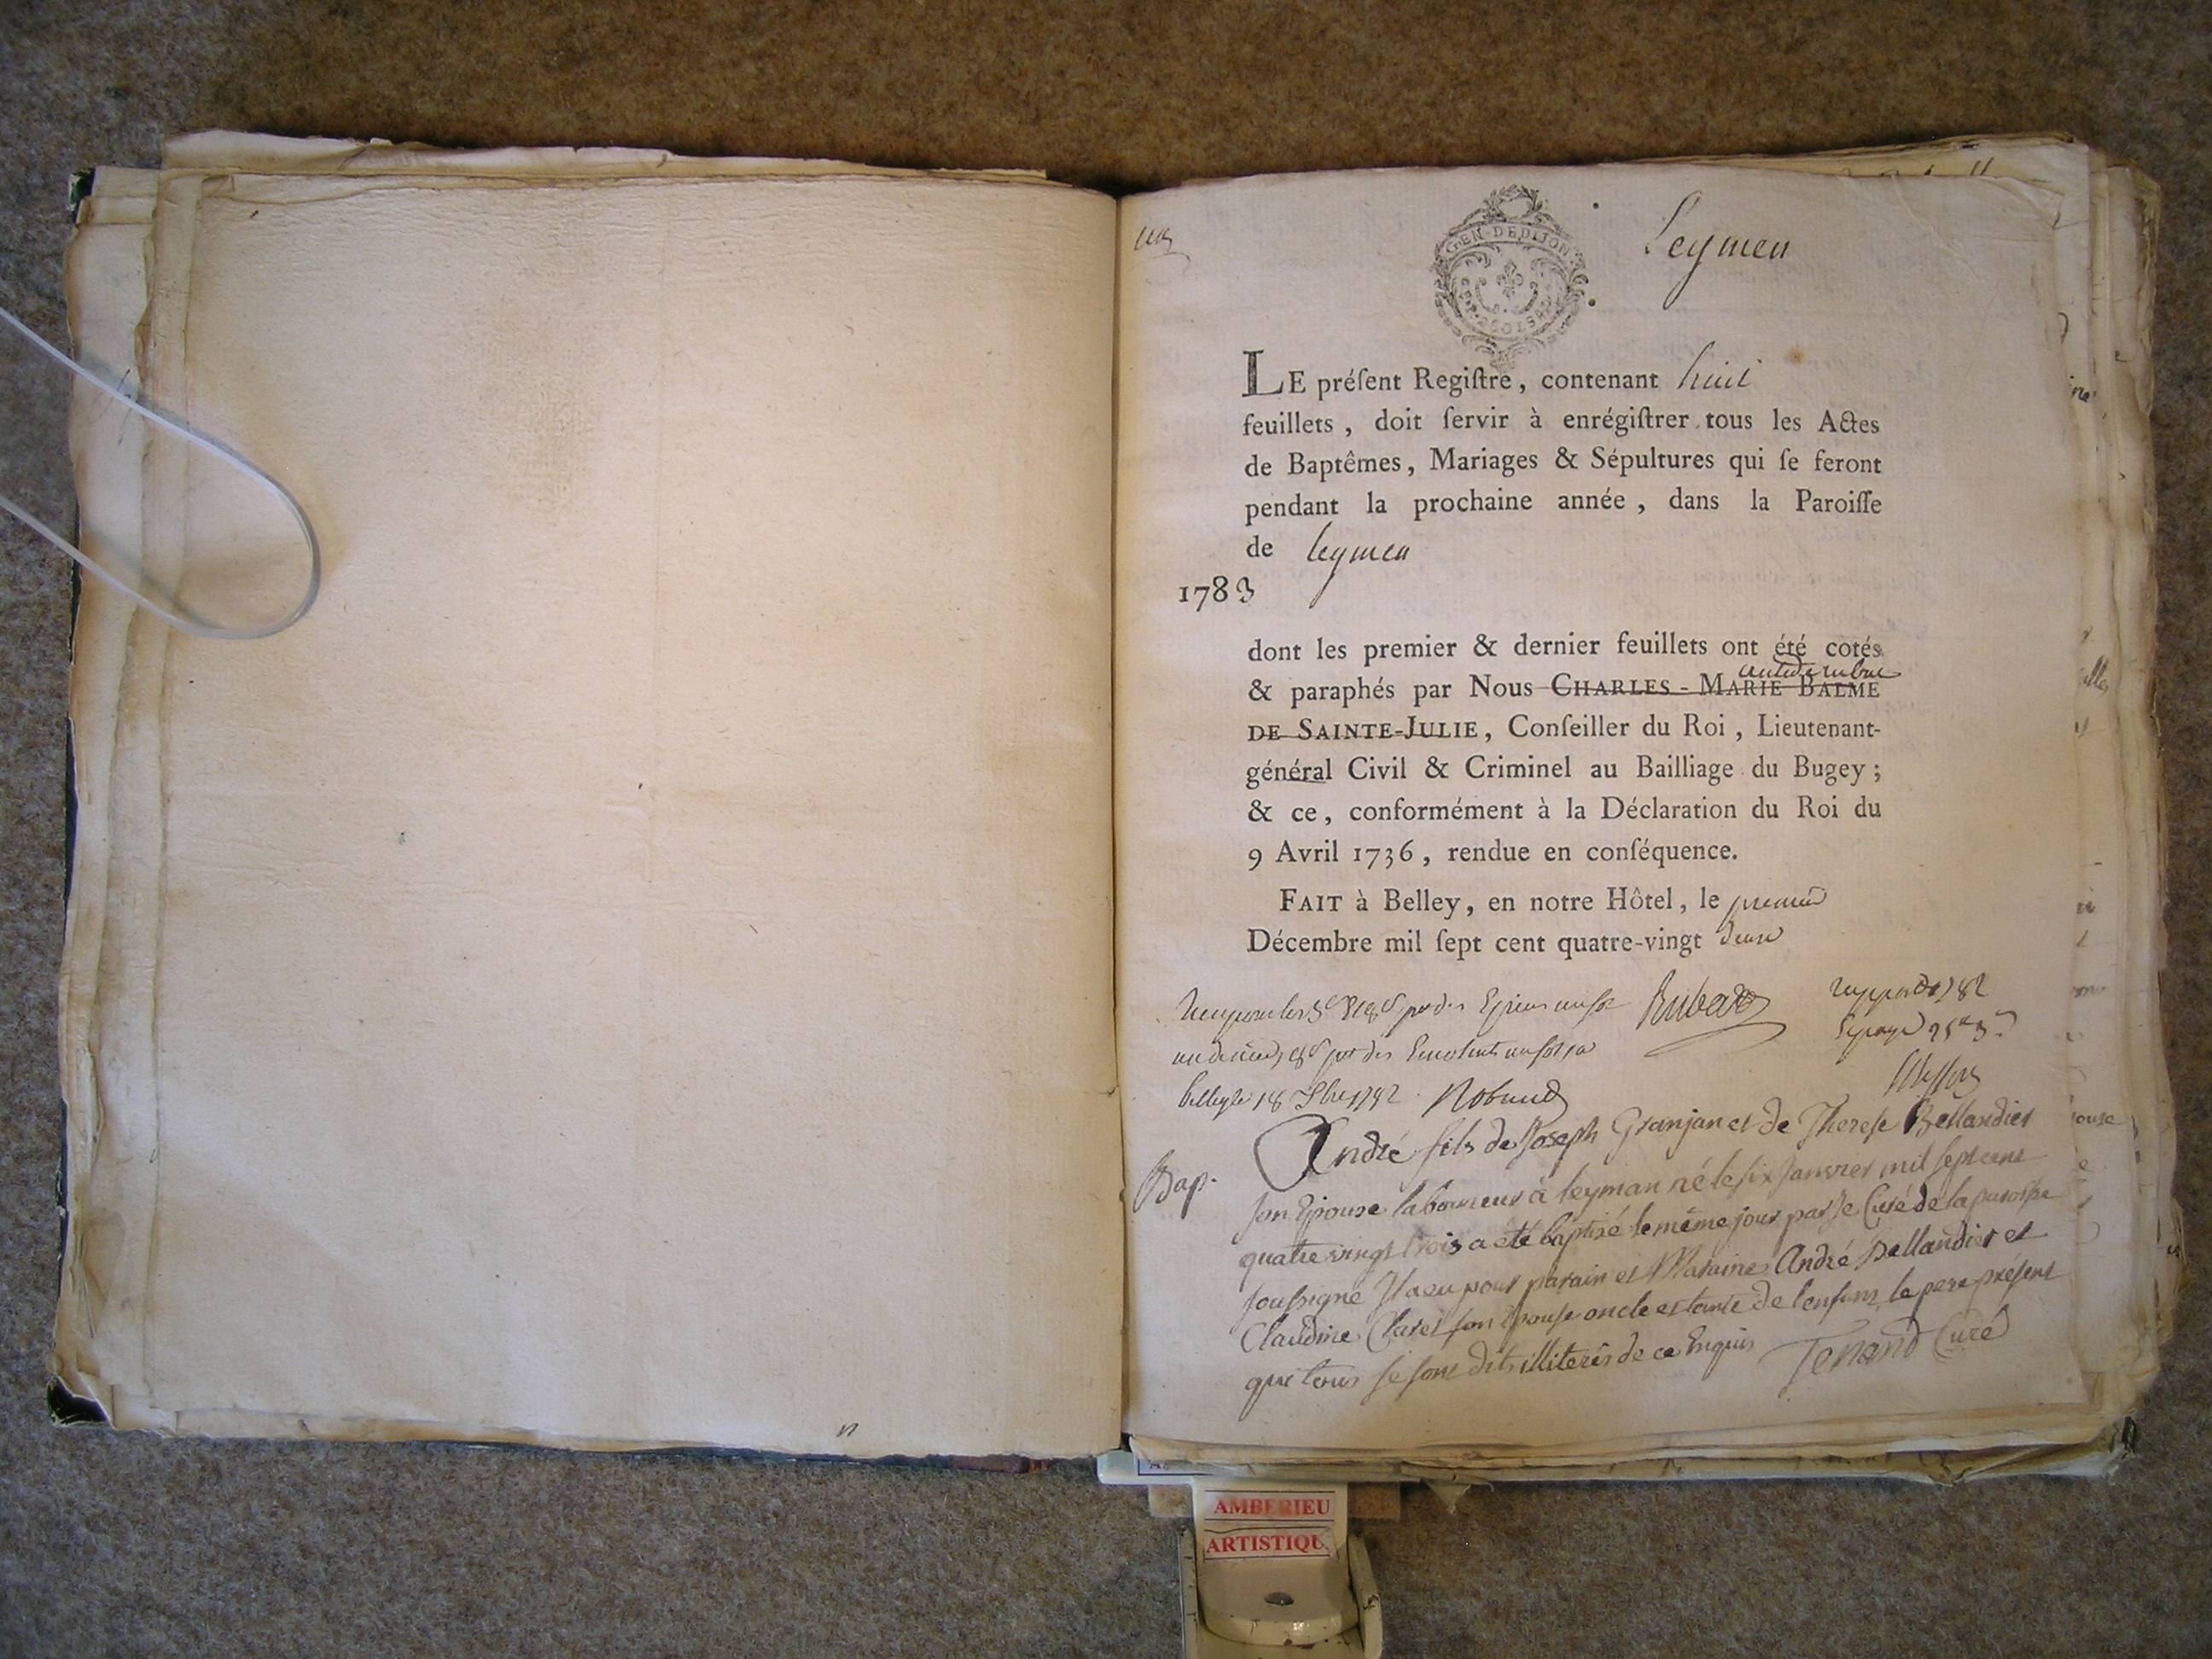 GEN · DE DIJON
Leymen
LE préſent Regiſtre, contenant huit
feuillets, doit ſervir à enrégiſtrer tous les Actes
de Baptêmes, Mariages & Sépultures qui ſe feront
pendant la prochaine année, dans la Paroiſſe
de leymen
1783
dont les premier & dernier feuillets ont été cotés
& paraphés par Nous CHARLES-MARIE BALME
DE SAINTE-JULIE, Conſeiller du Roi, Lieutenant-
général Civil & Criminel au Bailliage du Bugey;
& ce, conformément à la Déclaration du Roi du
9 Avril 1736, rendue en conſéquence.
FAIT à Belley, en notre Hôtel, le premier
Décembre mil ſept cent quatre-vingt deux
Bap.
André fils de Joseph Granjan et de Therese Bellandier
son Epouse laboureur à leyman né le six Janvier mil sept cent
quatre vingt trois a eté baptisé le même jour par Je Curé de la paroisse
soussigné Il a eu pour parain et Maraine André Bellandier et
Claudine Claret son Epouse oncle et tante de l'enfant le pere présent
qui tous se sont dits illiterés de ce Enquis Tenand Curé
AMBERIEU
ARTISTIQU